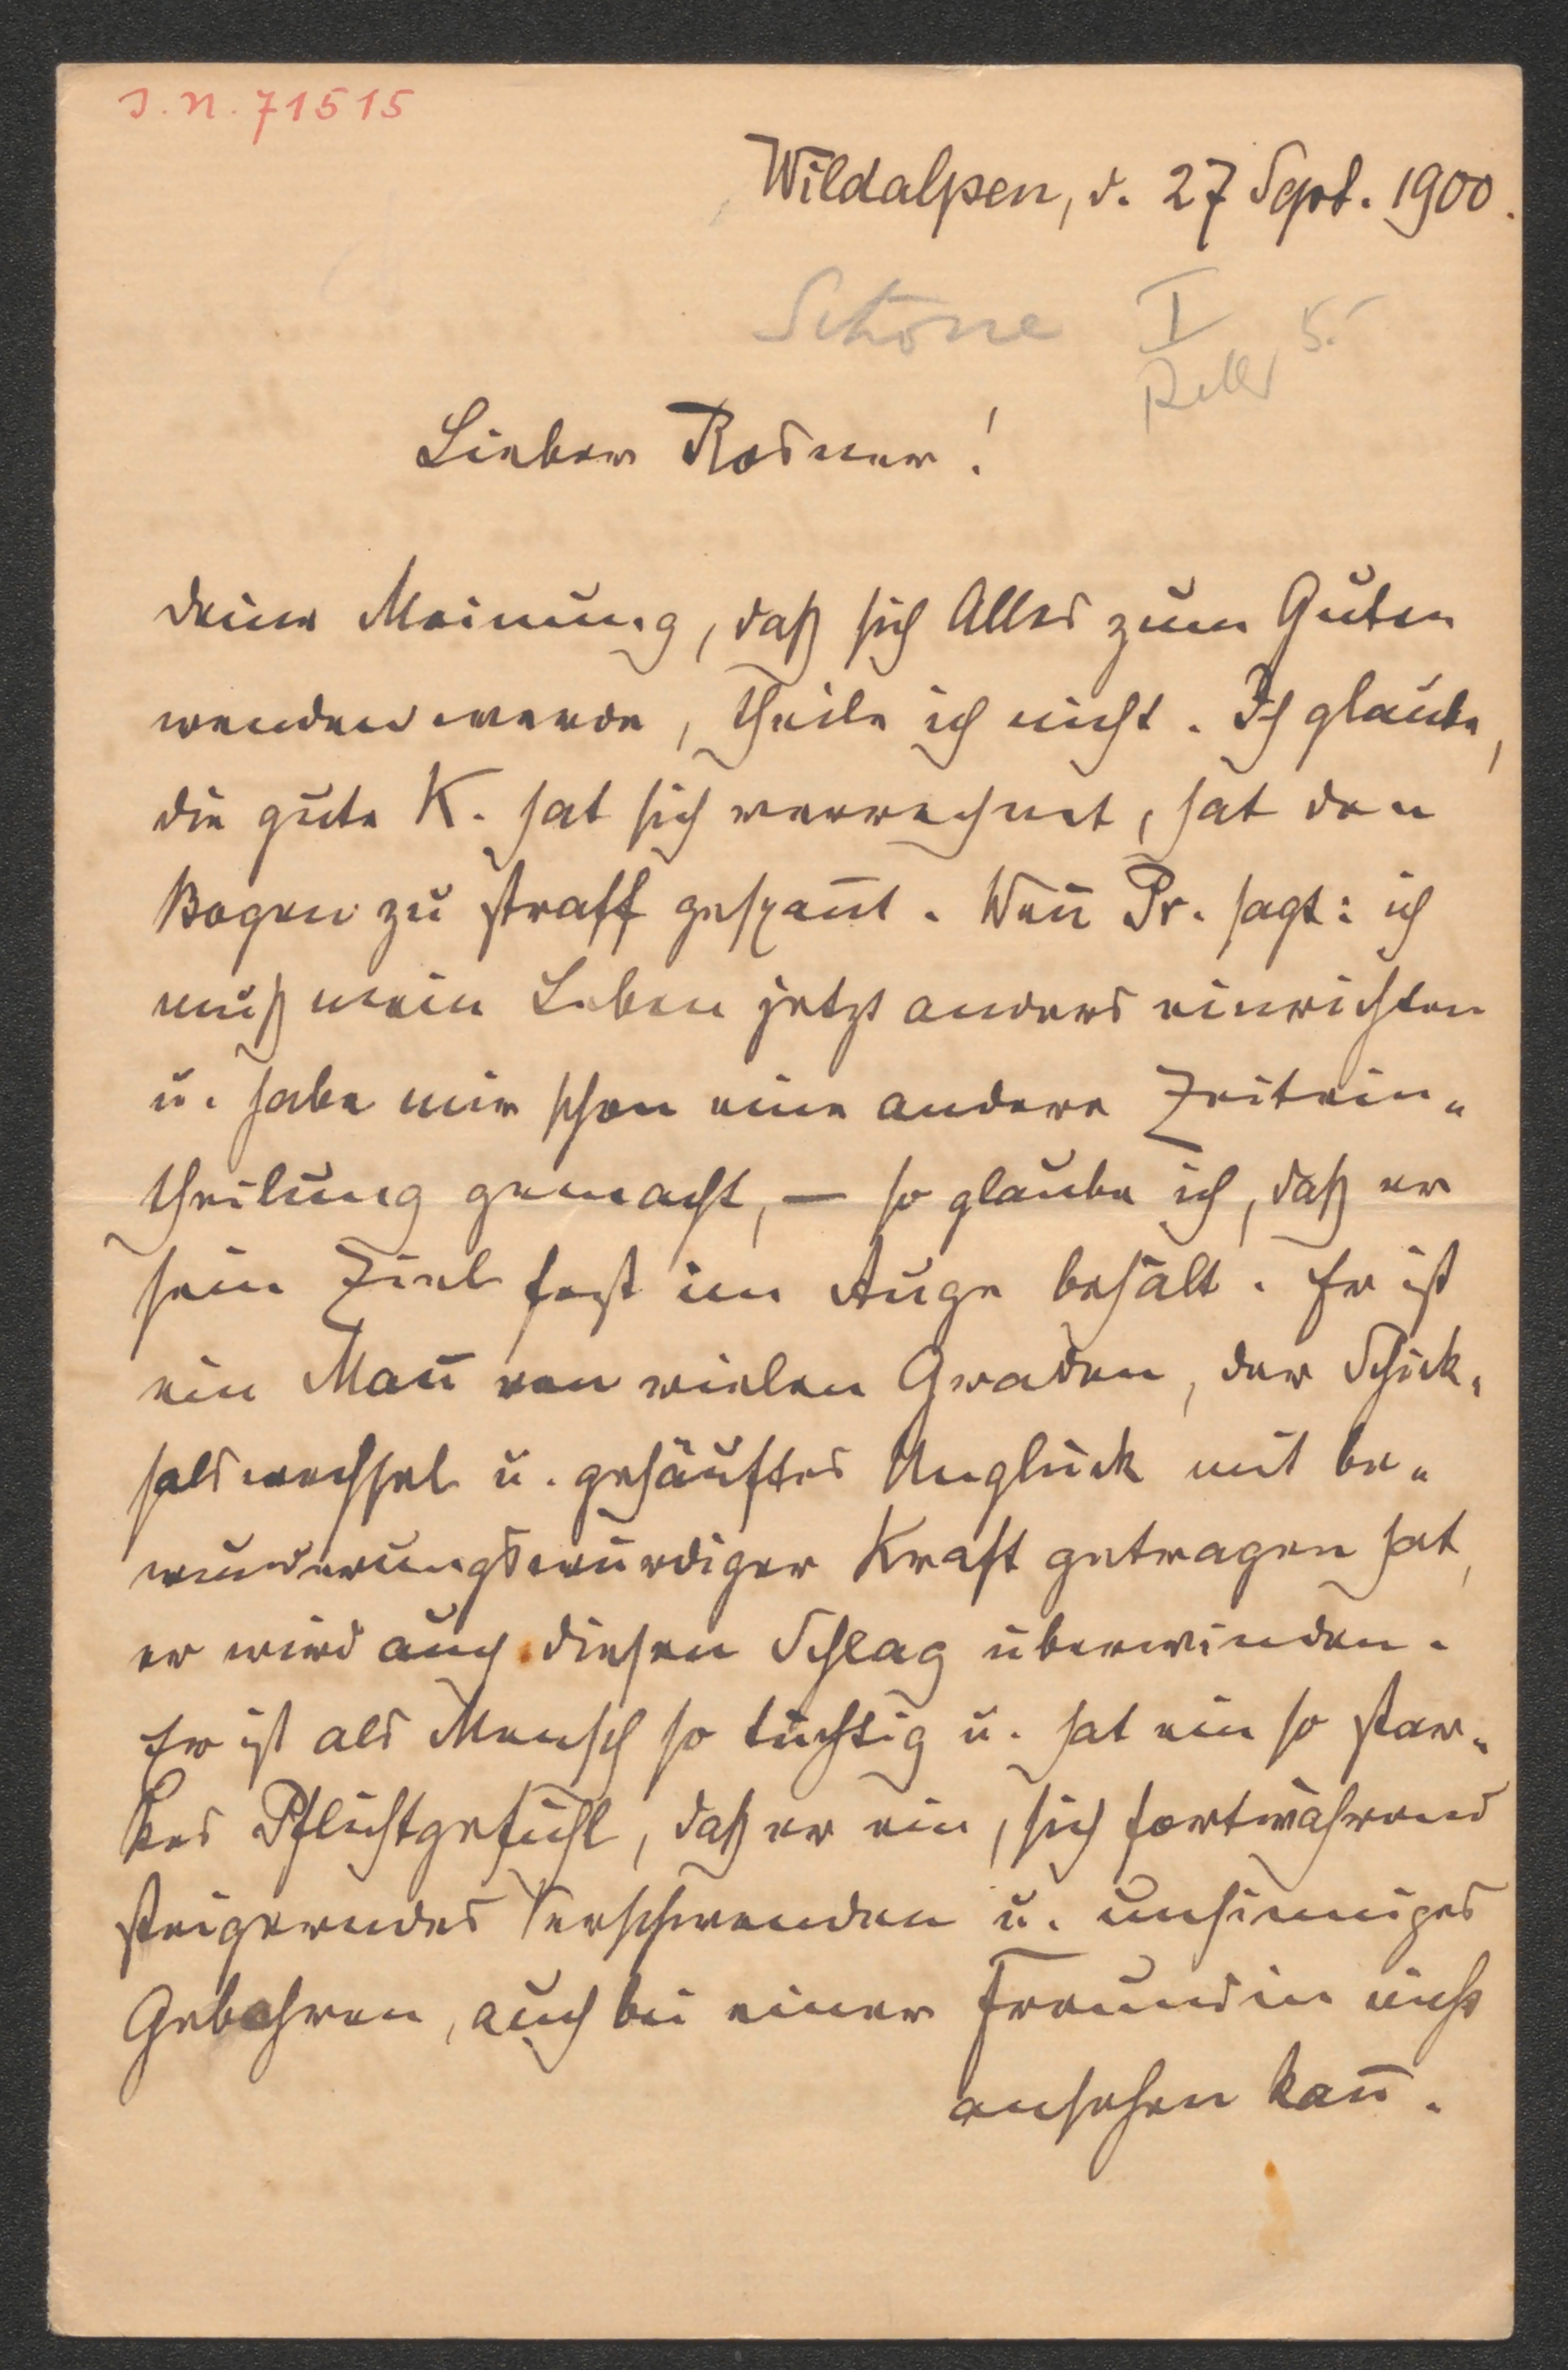 J. N. 71515
Wildalpen, d. 27 Sept. 1900.
Schöne I 5.-
Lieber Rosner!
deine Meinung, daß sich Alles zum Guten
wenden werde, theile ich nicht. Ich glaube,
die gute K. hat sich verrechnet, hat den
Bogen zu straff gespan̄t. Wen̄ Pr. sagt: ich
muß mein Leben jetzt anders einrichten
u. habe mir schon eine andere Zeitein„
theilung gemacht, — so glaube ich, daß er
sein Ziel fest im Auge behält. Er ist
ein Man̄ von vielen Graden, der Schick„
salswechsel u. gehäuftes Unglück mit be„
wunderungswürdiger Kraft getragen hat,
er wird auch diesen Schlag überwinden.
Er ist als Mensch so tüchtig u. hat ein so star„
kes Pflichtgefühl, daß er ein, sich fortwährend
steigerndes Verschwenden u. unsinniges
Gebahren, auch bei einer Freundin nicht
ansehen kan̄.